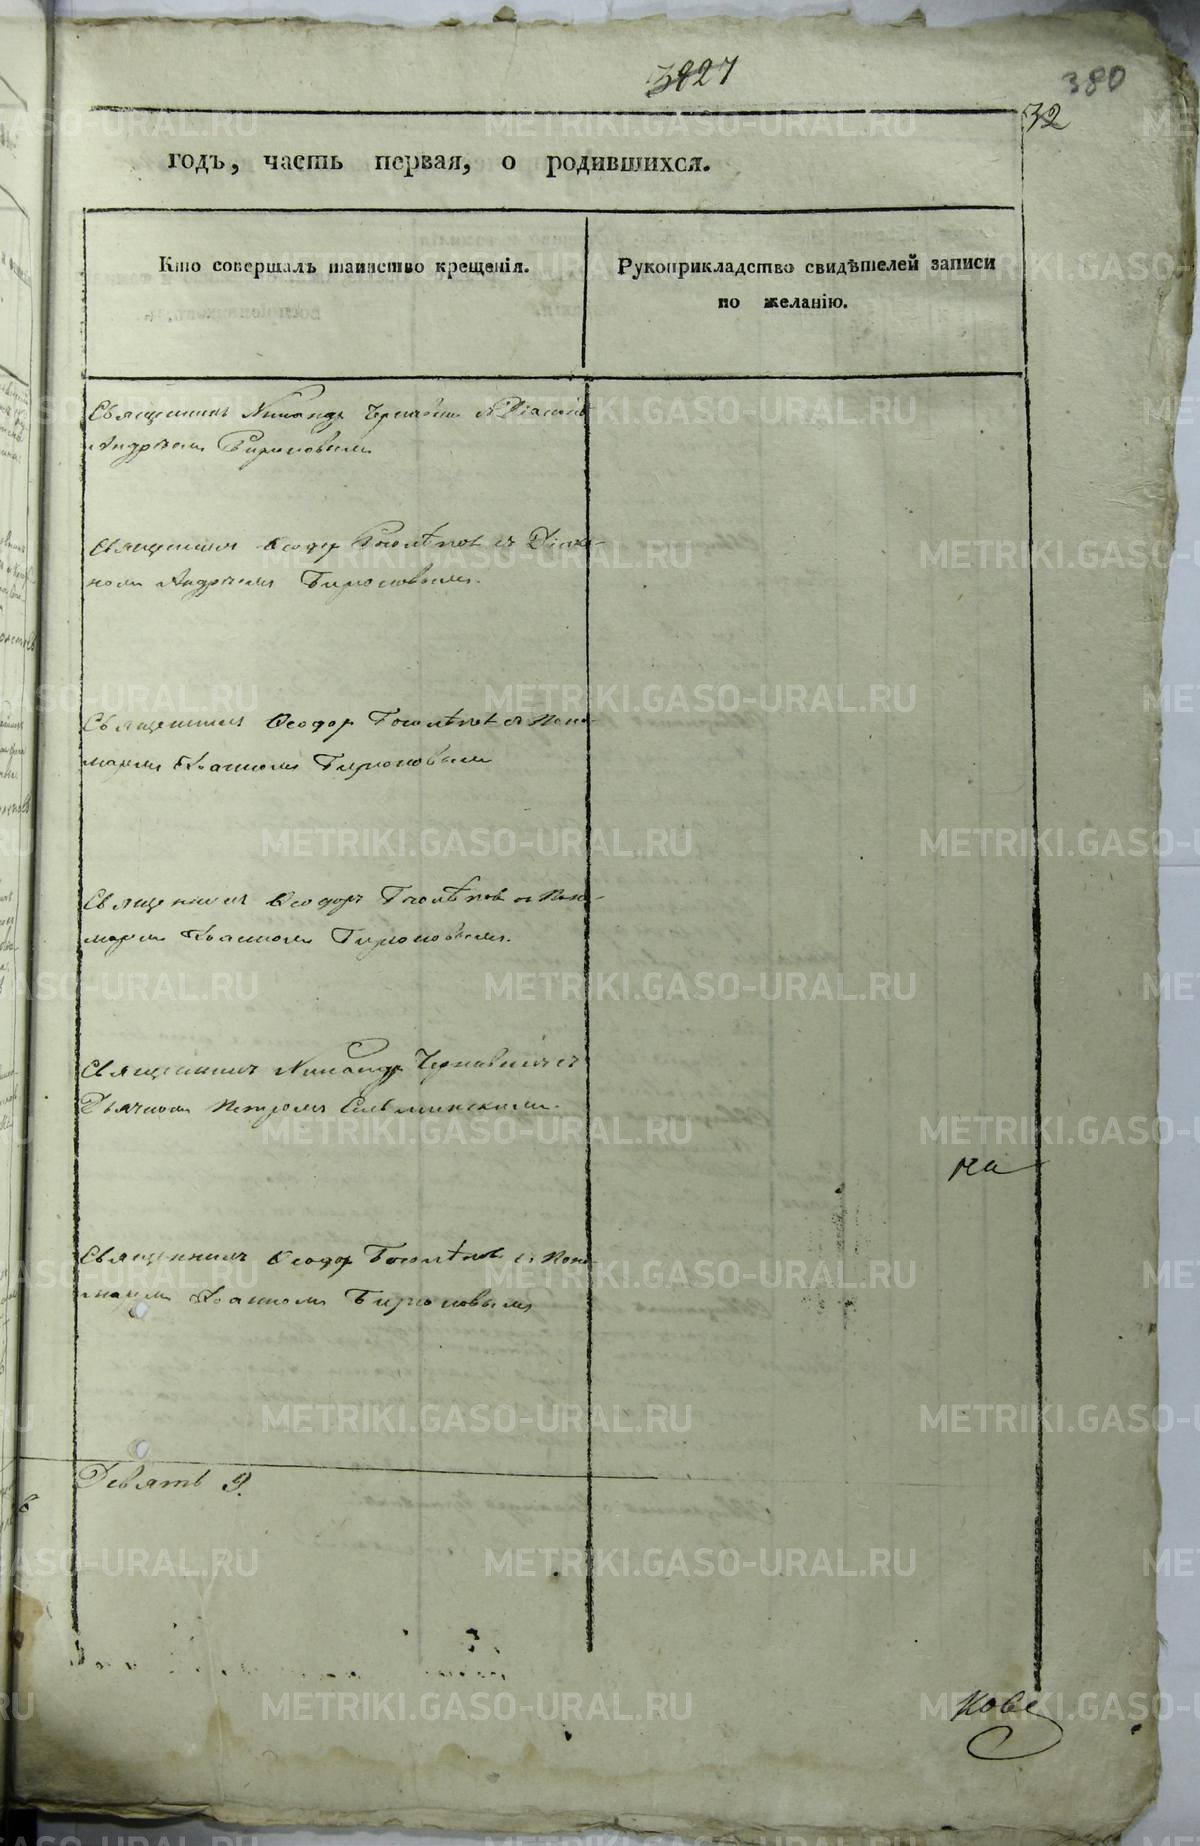 380
32
годъ, часть первая, о родившихся.
Кто совершалъ таинство крещенія.
Рукоприкладство свидѣтелей записи
по желанію.
Священникъ Никандръ Чернавинъ с Діакономъ
Андреемъ Бирюковымъ
Священникъ Ѳеодоръ с Діако-
номъ Андреемъ Бирюковымъ.
Священникъ Ѳеодоръ съ Поно-
маремъ Іоанномъ Бирюковымъ
Священникъ Ѳеодоръ съ Поно-
маремъ Іоанномъ Бирюковымъ.
Священникъ Никандръ Чернавинъ съ
Дьячкомъ Петромъ Сельминскимъ.
на
Священникъ Ѳеодоръ съ Поно-
маремъ Іоанномъ Бирюковымъ
Девять 9.
METRIKI.GASO-URAL.RU